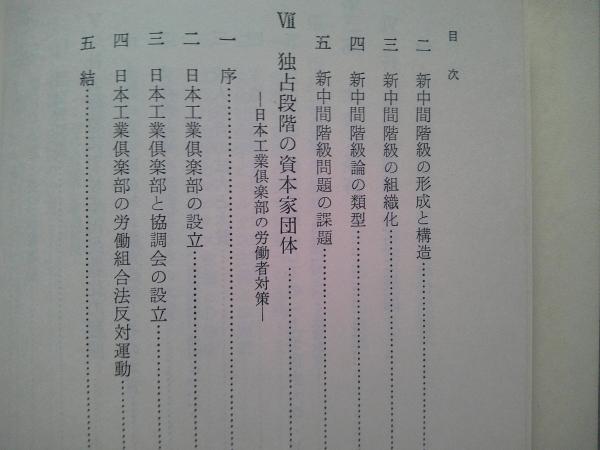 目次
二 新中間階級の形成と構造……………………
三 新中間階級の組織化……………………
四 新中間階級論の類型……………………
五 新中間階級問題の課題……………………
Ⅶ 独占段階の資本家団体……………………
―日本工業倶楽部の労働者対策―
一 序……………………
二 日本工業倶楽部の設立……………………
三 日本工業倶楽部と協調会の設立……………………
四 日本工業倶楽部の労働組合法反対運動……………………
五 結……………………